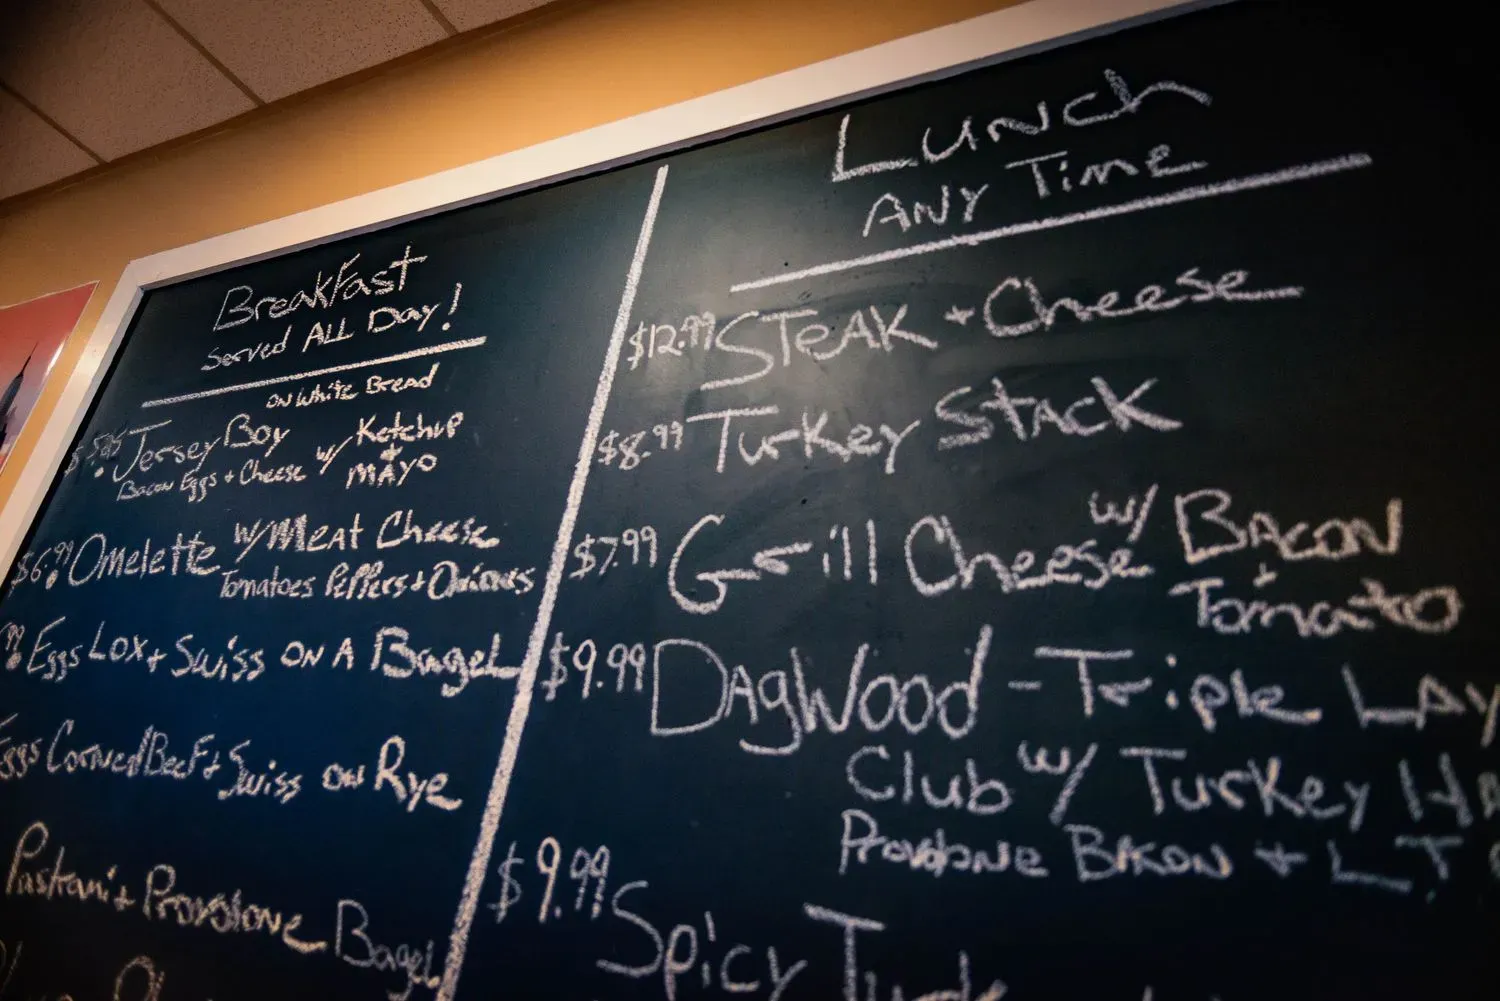 Breakfast
Served ALL Day!
ON White Bread
Jersey Boy w/ Ketchup
+
Bacon Eggs + Cheese MAYO
$6.99 Omelette w/ Meat Cheese
Tomatoes Peppers + Onions
Eggs Lox + Swiss ON A Bagel
Eggs Corned Beef + Swiss on Rye
Pastrami + Provolone Bagel
Lunch
ANY Time
$12.99 STEAK + Cheese
$8.99 Turkey STACK
$7.99 Grill Cheese w/ BACON
+
Tomato
$9.99 DAgWood - Triple LAY
Club w/ Turkey HA
Provolone BACON + L.T
$9.99 Spicy